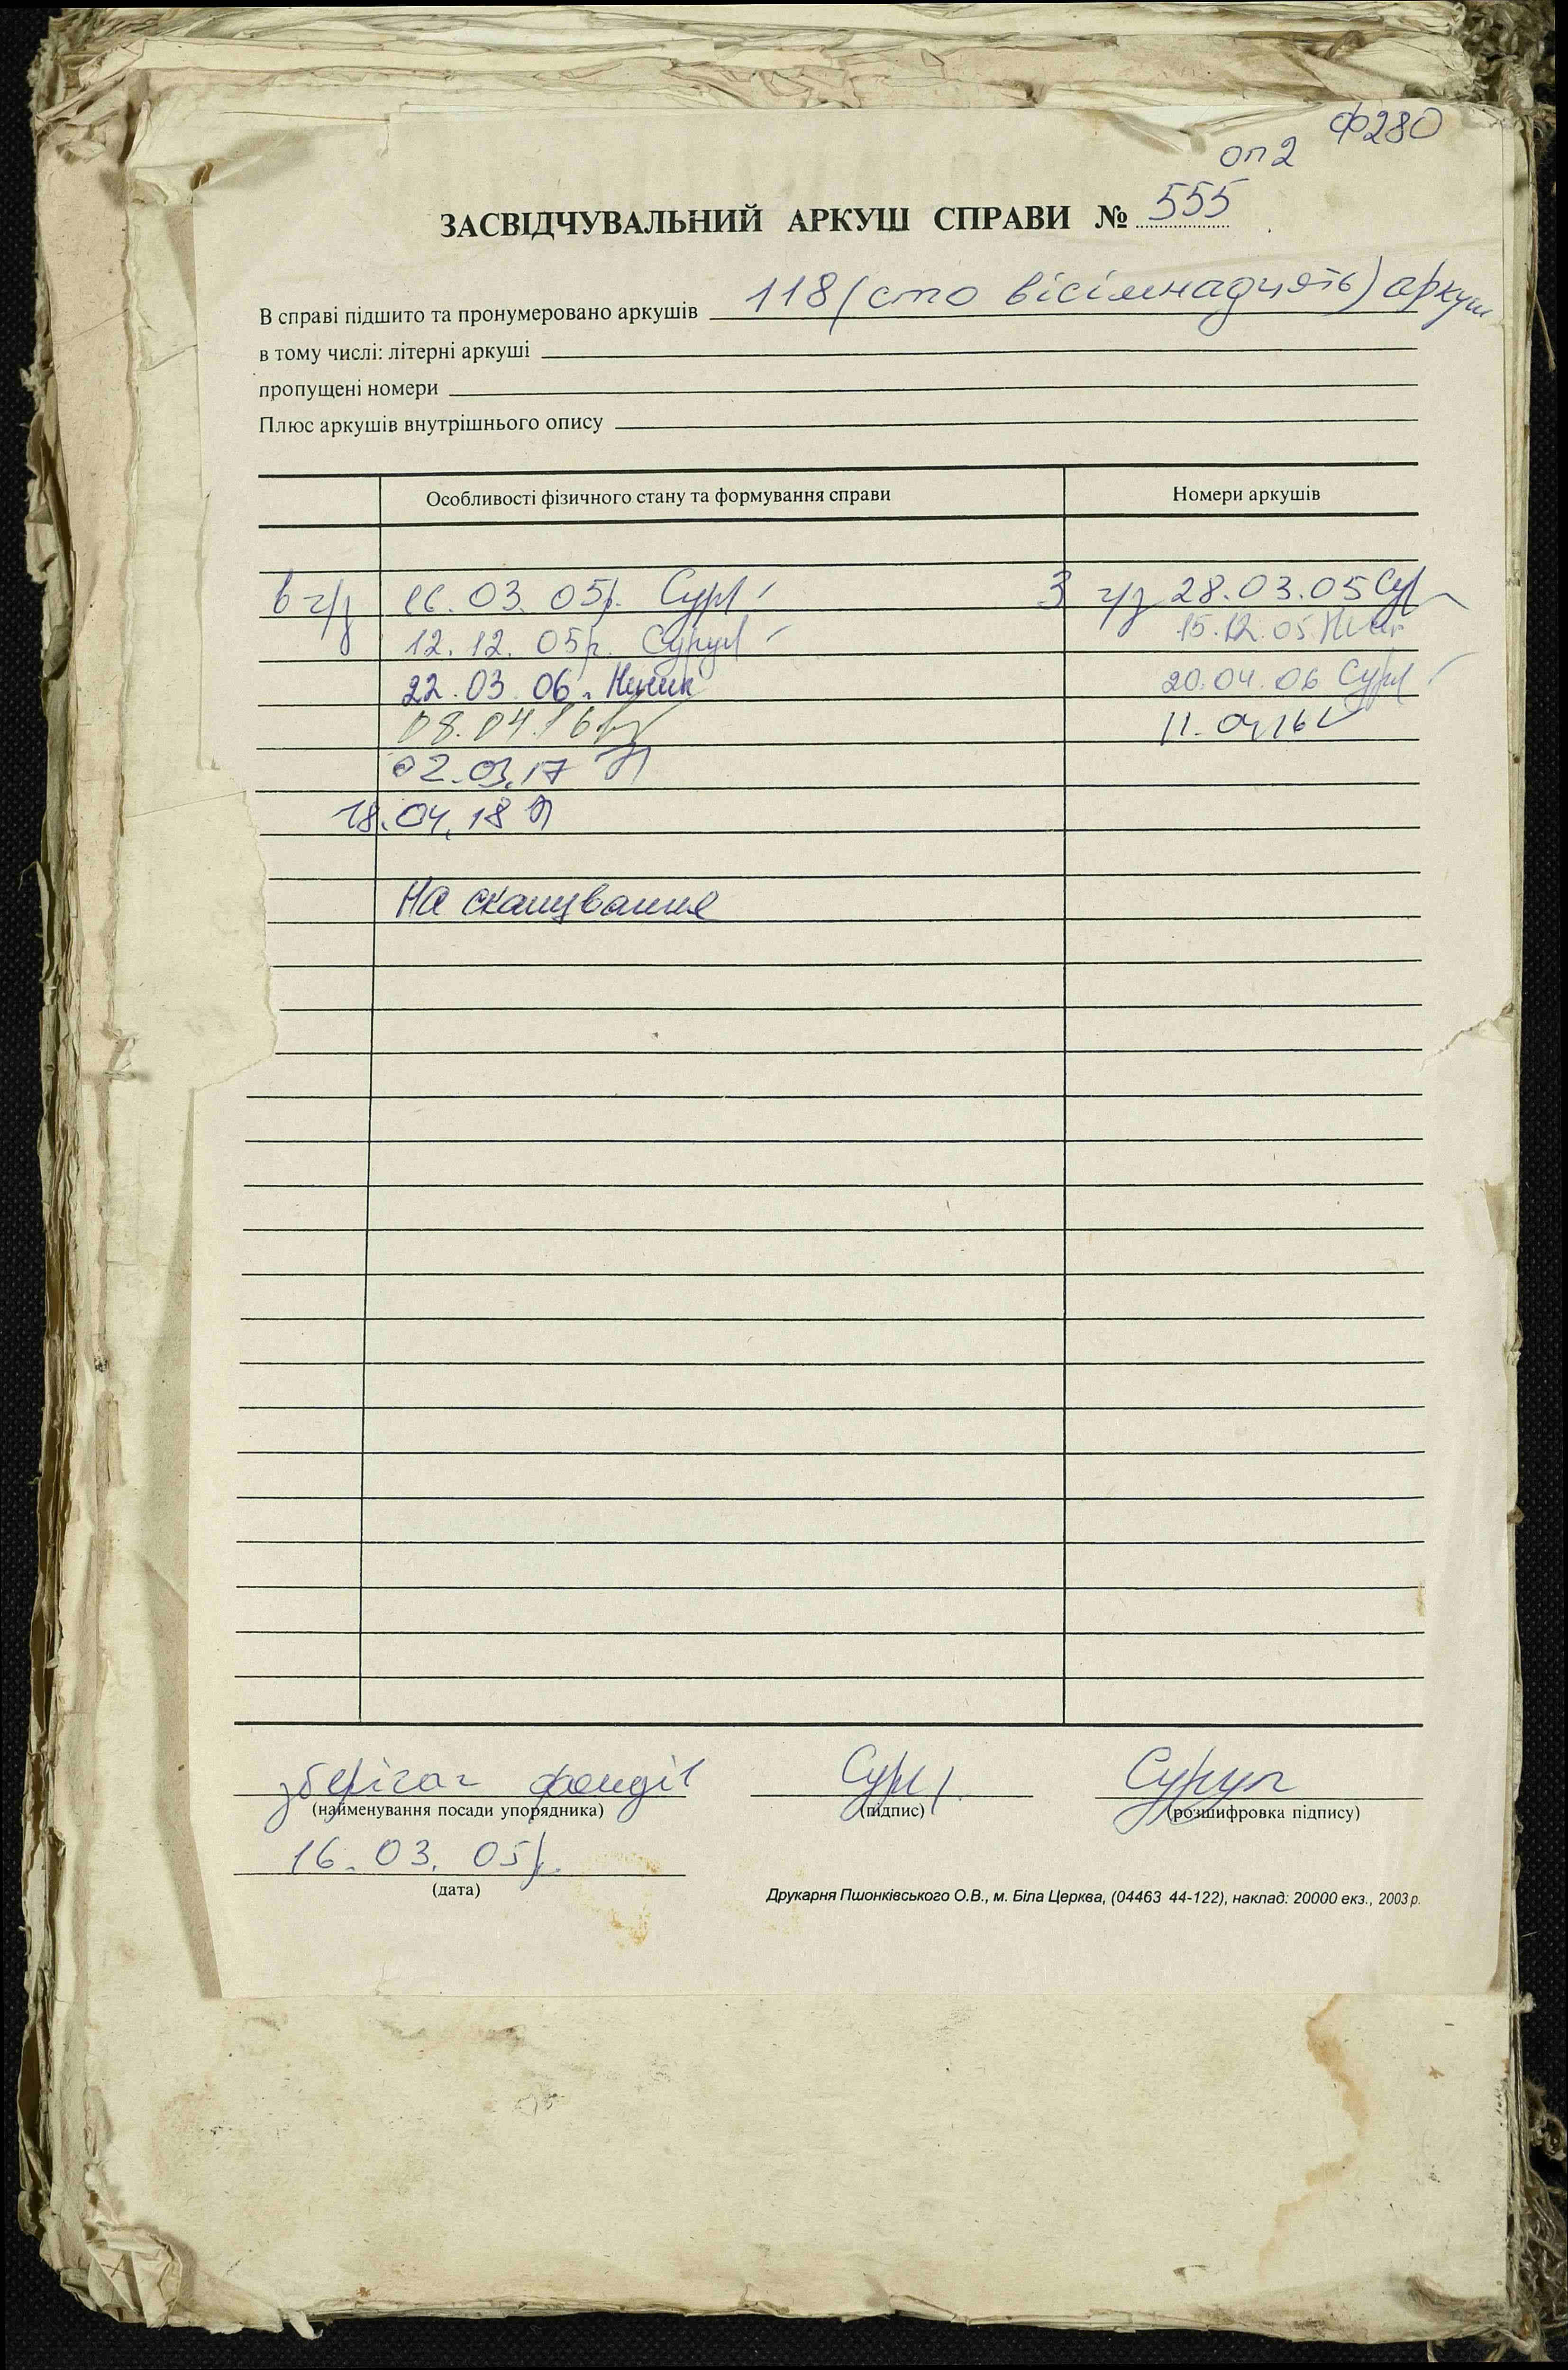 ф280
оп2
ЗАСВІДЧУВАЛЬНИЙ АРКУШ СПРАВИ № 555
В справі підшито та пронумеровано аркушів 118 (сто вісімнадцять) аркуш
в тому числі: літерні аркуші
пропущені номери
Плюс аркушів внутрішнього опису
Особливості фізичного стану та формування справи Номери аркушів
в ч/з 16.03.05р. З ч/з 28.03.05
12.12.05р. 15.12.05
22.03.06 20.04.06
08.04.16 11.04.16
02.03.17
18.04.18
На сканування
зберігач фондів
(найменування посади упорядника) (підпис) (розшифровка підпису)
16.03.05р.
(дата)
Друкарня Пшонківського О.В., м. Біла Церква, (04463 44-122), наклад: 20000 екз., 2003 р.